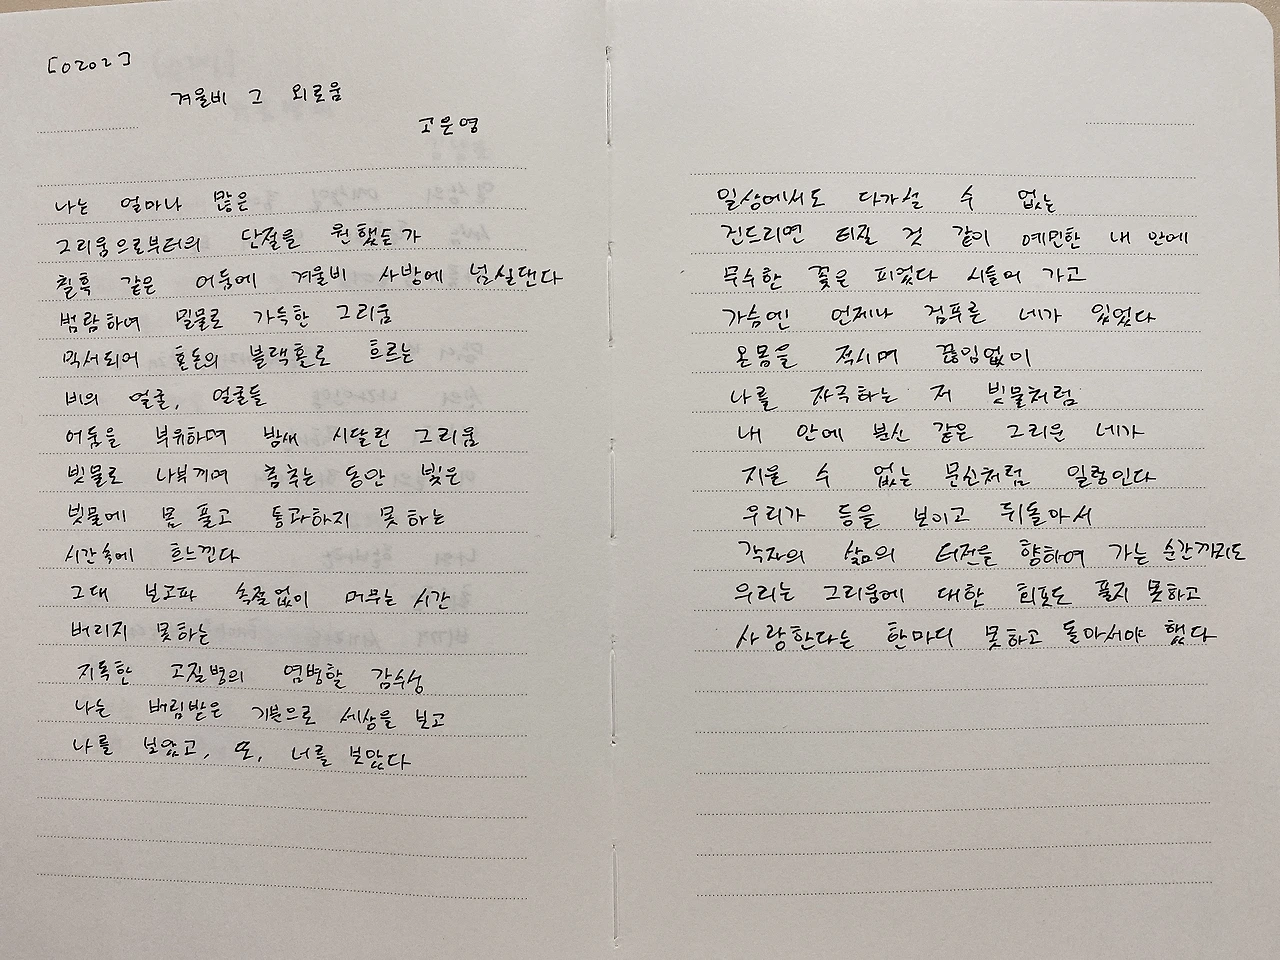 [0202]
겨울비 그 외로움
고은영
나는 얼마나 많은
그리움으로부터의 단절을 원했는가
칠흑 같은 어둠에 겨울비 사방에 넘실댄다
범람하여 밀물로 가득한 그리움
믹서되어 혼돈의 블랙홀로 흐르는
비의 얼굴, 얼굴들
어둠을 부유하며 밤새 시달린 그리움
빗물로 나부끼며 춤추는 동안 빛은
빗물에 몸 풀고 통과하지 못 하는
시간축에 흐느낀다
그대 보고파 속절없이 머무는 시간
버리지 못하는
지독한 고질병의 염병할 감수성
나는 버림받은 기분으로 세상을 보고
나를 보았고, 또, 너를 보았다
일상에서도 다가설 수 없는
건드리면 터질 것 같이 예민한 내 안에
무수한 꽃은 피었다 시들어 가고
가슴엔 언제나 검푸른 네가 있었다
온몸을 적시며 끊임없이
나를 자극하는 저 빗물처럼
내 안에 분신 같은 그리운 네가
지울 수 없는 문신처럼 일렁인다
우리가 등을 보이고 뒤돌아서
각자의 삶의 터전을 향하여 가는 순간까지도
우리는 그리움에 대한 회포도 풀지 못하고
사랑한다는 한마디 못하고 돌아서야 했다